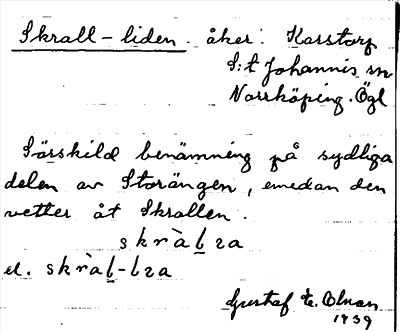 Skrall-liden. åker. Karstorp
S:t Johannis sn
Norrköping. Ögl
Särskild benämning på sydliga
delen av Storängen, emedan den
vetter åt Skrallen.
skràlɩa
el. skràl-lɩa
Gustaf E.
1939